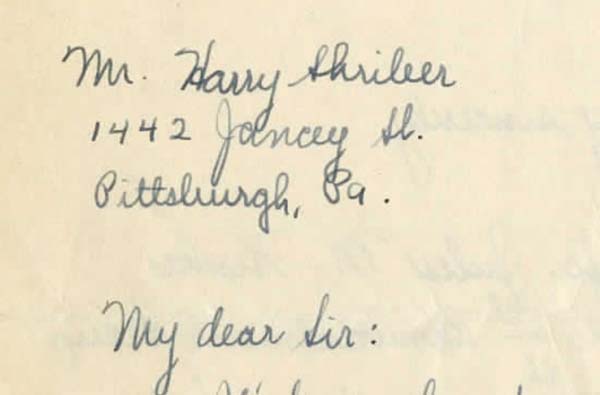 Mr. Harry Shriber
1442 Jancey St.
Pittsburgh, Pa.
My dear Sir: